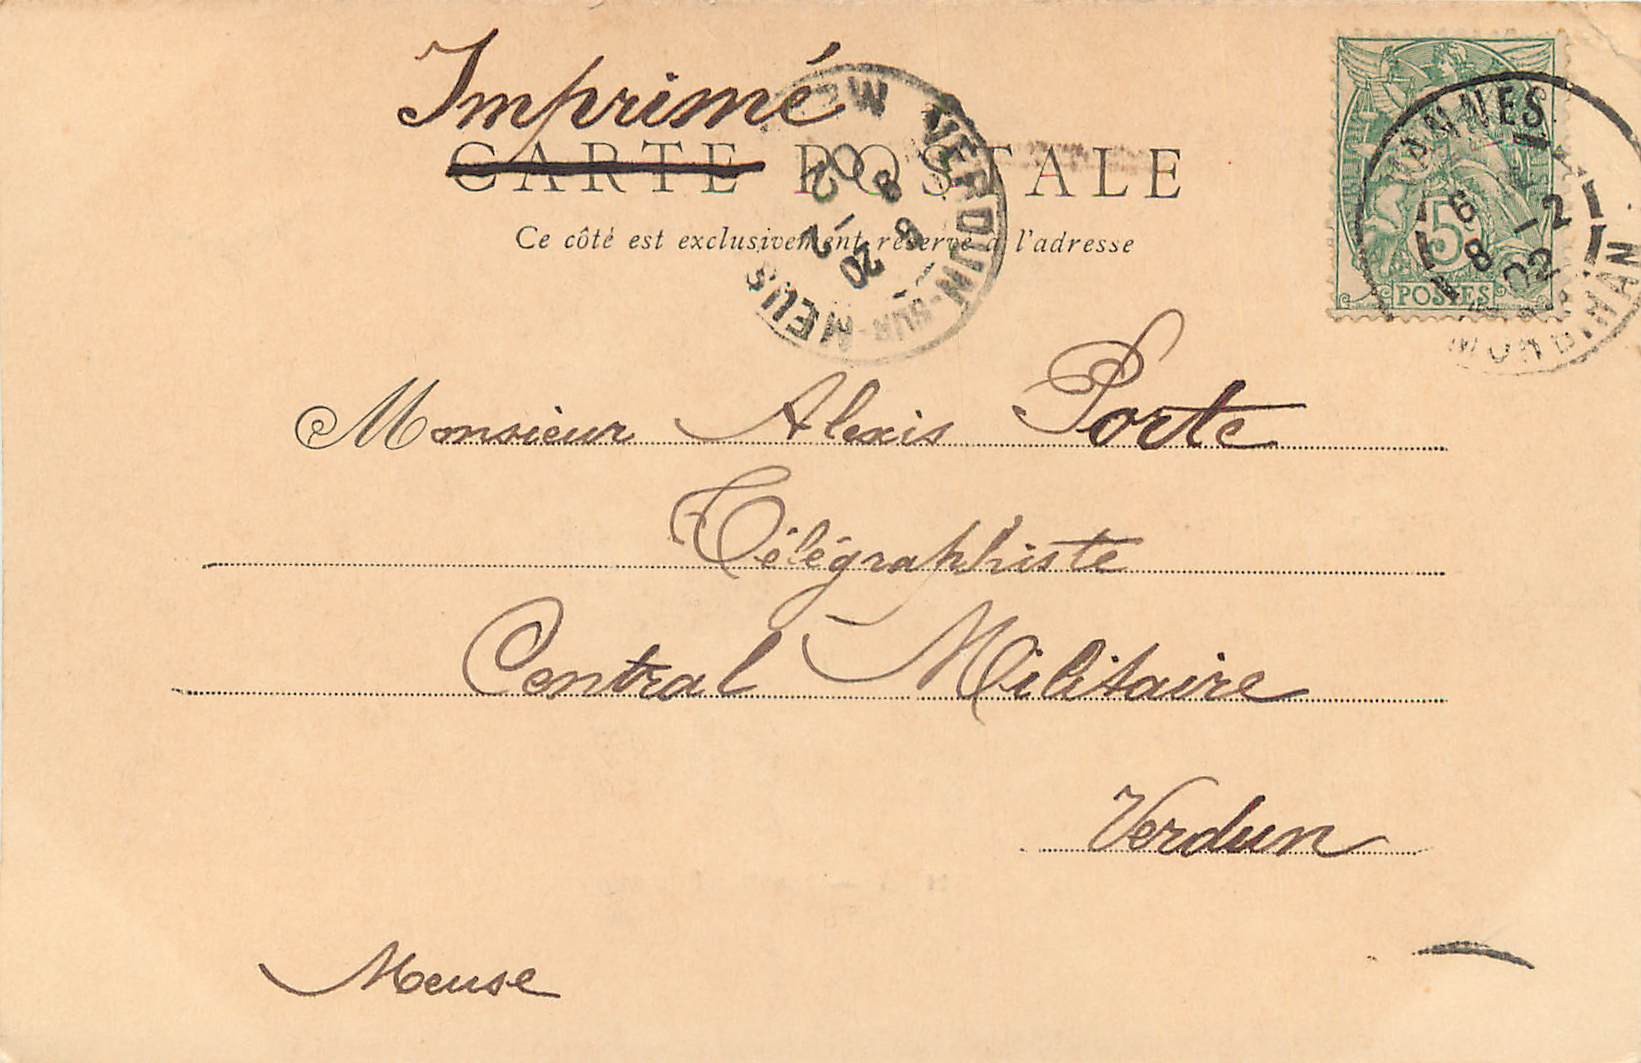 Imprimé
CARTE POSTALE
Ce côté est exclusivement réservé à l'adresse
VERDUN-SUR-MEUSE
20
8 -2
02
VANNES
MORBIHAN
8 -2
02
5
POSTES
Monsieur Alexis Porte
Télégraphiste
Central Militaire
Verdun
Meuse